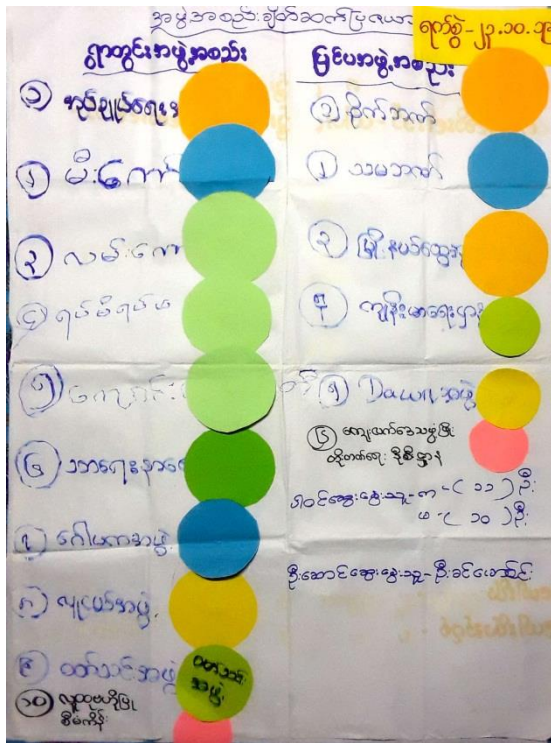 အဖွဲ့အစည်းချိတ်ဆက်ပြဇယား
ရက်စွဲ-၂၃.၁၀.၁၈
ရွာတွင်းအဖွဲ့အစည်း
၁ အုပ်ချုပ်ရေး
၂ မီးကော်
၃ လမ်းကော
၄ ရပ်မိရပ်ဖ
၅ ကျောင်း
၆ သာရေးနာရေး
၇ ဂေါပကအဖွဲ့
၈ လူငယ်အဖွဲ့
၉ ဝတ်သင်းအဖွဲ့
ဝတ်သင်း
အဖွဲ့
၁၀ လူထုဗဟိုပြု
စီမံကိန်း
ပြင်ပအဖွဲ့အစည်း
၁ စိုက်ဘဏ်
၂ သမဘဏ်
၃ မြို့နယ်ထွေအုပ်
၄ ကျန်းမာရေးဌာန
၅ Dawn အဖွဲ့
၆ ကျေးလက်ဒေသဖွံ့ဖြိုး
တိုးတက်ရေး ဦးစီးဌာန
ပါဝင်ဆွေးနွေးသူ- က -( ၁၁ ) ဦး
မ -( ၁၀ ) ဦး
ဦးဆောင်ဆွေးနွေးသူ- ဦးခင်မောင်ဝင်း